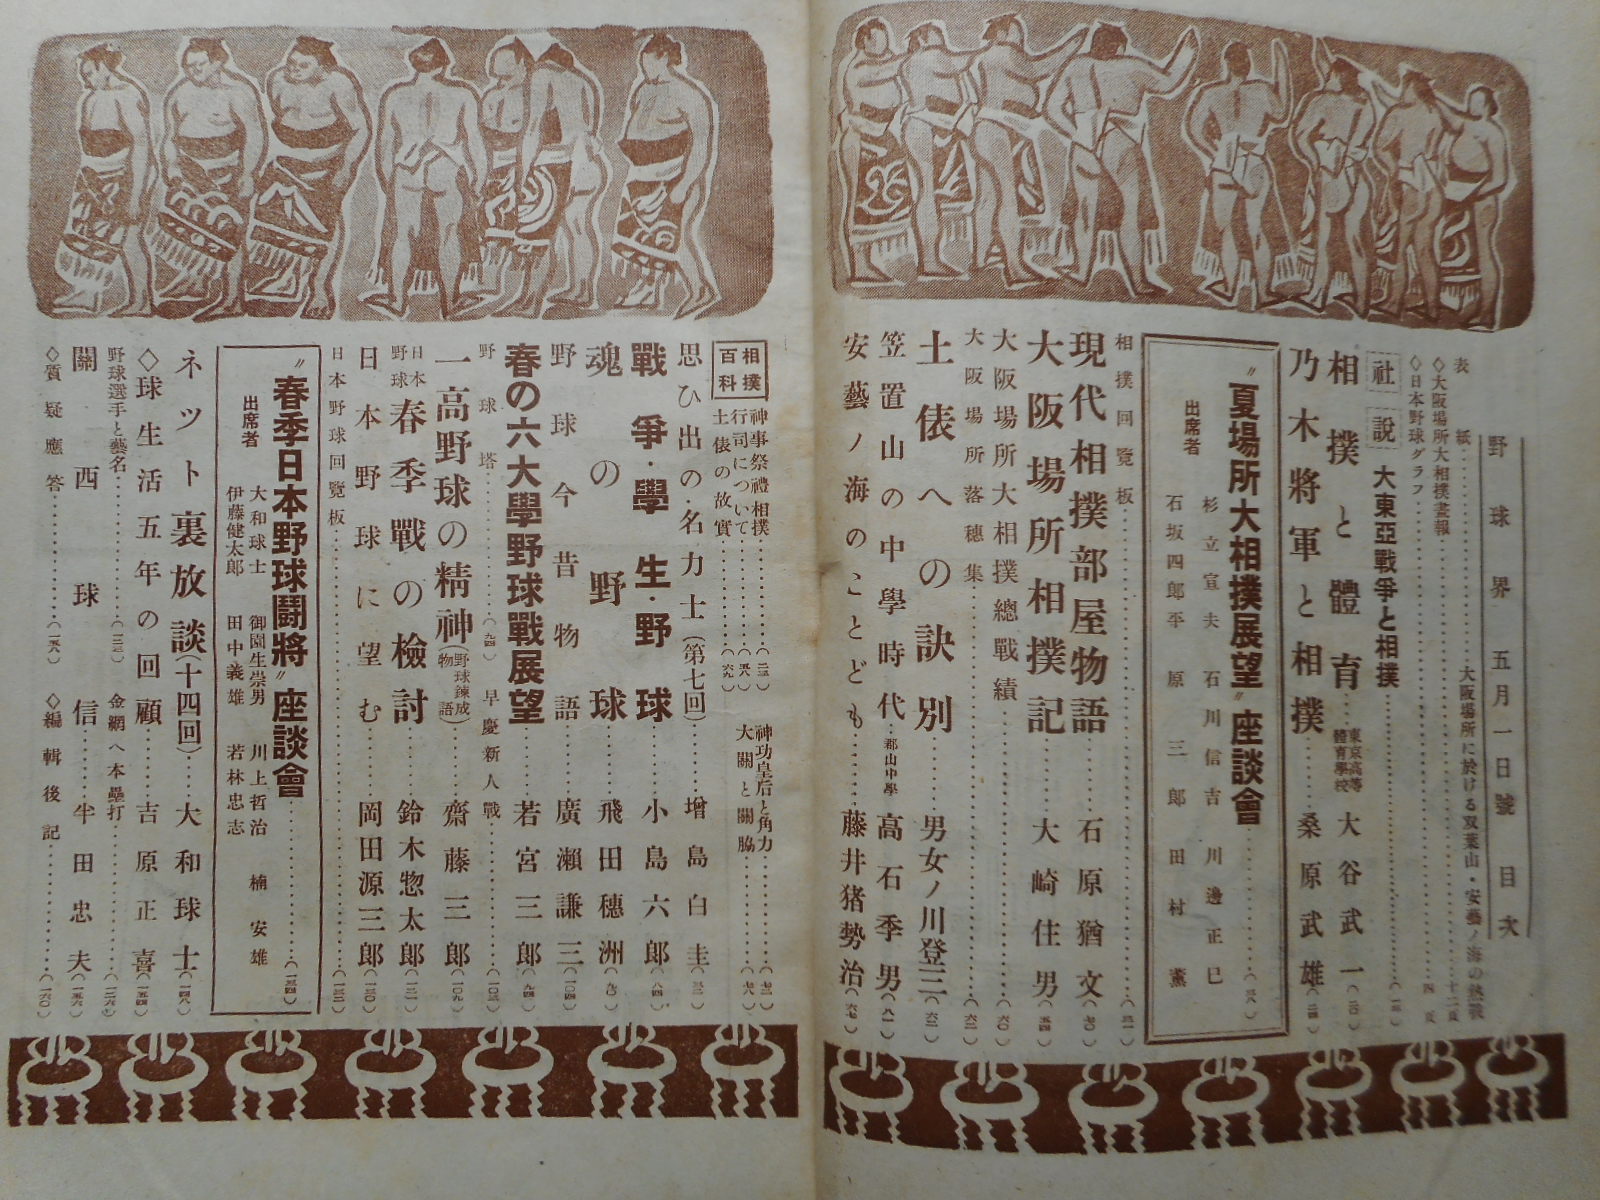 野球界五月一日號目次
表紙……大阪場所に於ける双葉山・安藝ノ海の熱戰
◇大阪場所大相撲畫報……十二頁
◇日本野球グラフ……四頁
社説 大東亞戰爭と相撲
相撲と體育……東京高等體育學校 大谷武一
乃木將軍と相撲……桑原武雄
〝夏場所大相撲展望〟座談會
出席者
杉立宣夫 石川信吉 川邊正巳
石坂四郎平 原三郎 田村薰
相撲回覧板
現代相撲部屋物語……石原猶文
大阪場所相撲記……大崎住男
大阪場所大相撲總戰績
大阪場所落穗集
土俵への訣別……男女ノ川登三
笠置山の中學時代……郡山中學 高石季男
安藝ノ海のことども……藤井猪勢治
相撲百科
神事祭禮相撲
行司について
土俵の故實
神功皇后と角力
大關と關脇
思ひ出の名力士(第七回)……增島白圭
戰爭・學生・野球……小島六郎
魂の野球……飛田穗洲
野球今昔物語……廣瀨謙三
春の六大學野球戰展望……若宮三郎
野球塔……(九四) 早慶新人戰……(一〇三)
一高野球の精神(野球鍊成物語)……齋藤三郎(一〇九)
日本野球春季戰の檢討……鈴木惣太郎
日本野球に望む……岡田源三郎
日本野球回覧板
〝春季日本野球鬪將〟座談會
出席者
大和球士 御園生崇男 川上哲治 楠安雄
伊藤健太郎 田中義雄 若林忠志
ネット裏放談(十四回)……大和球士
◇球生活五年の回顧……吉原正喜
野球選手と藝名…… 金網へ本壘打
關西球信……半田忠夫
◇質疑應答…… ◇編輯後記……(一六〇)